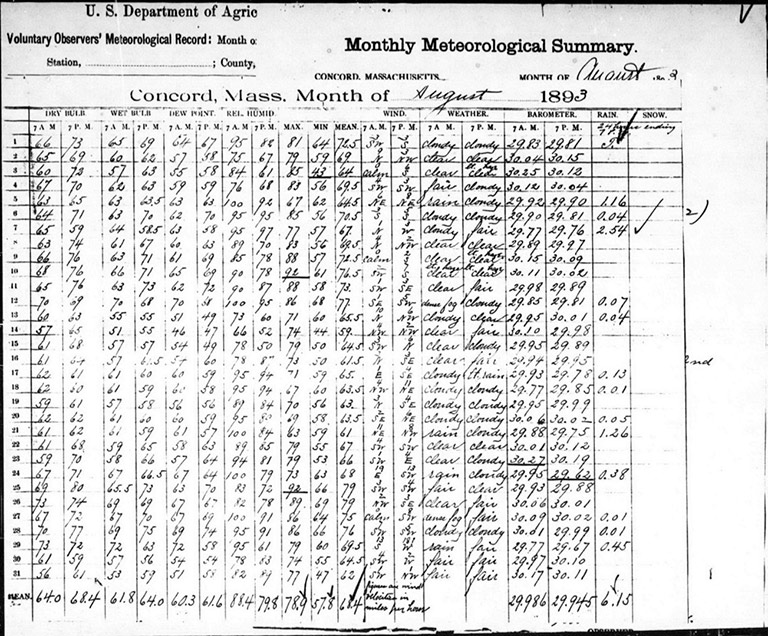 U. S. Department of Agric
Voluntary Observers' Meteorological Record: Month o
Station, ; County,
Monthly Meteorological Summary.
CONCORD, MASSACHUSETTS. MONTH OF August 1893
Concord, Mass. Month of August 1893
DRY BULB WET BULB DEW POINT. REL. HUMID. WIND. WEATHER. BAROMETER. RAIN. SNOW.
7 A. M. 7 P. M. 7 A. M. 7 P. M. 7 A. M. 7 P. M. 7 A. M. 7 P. M. MAX. MIN MEAN. 7 A. M. 7 P. M. 7 A. M. 7 P. M. 7 A. M. 7 P. M. ending
1 66 73 65 69 64 67 95 82 81 64 72.5 SW S cloudy cloudy 29.83 29.81 T.
2 65 69 60 62 57 58 75 67 79 59 69 N NW clear clear 30.04 30.15
3 60 72 57 63 55 58 84 61 85 43 64 calm S clear clear 30.25 30.12
4 67 70 62 63 59 59 76 68 83 56 69.5 SW S fair cloudy 30.12 30.04
5 63 65 63 63.5 63 63 100 92 67 62 64.5 NE NE rain cloudy 29.92 29.90 1.16
6 64 71 63 70 62 70 95 95 85 56 70.5 S S cloudy cloudy 29.90 29.81 0.04
7 65 59 64 58.5 63 58 95 97 77 57 67 N W cloudy fair 29.77 29.76 2.54
8 63 74 61 67 60 63 89 70 83 56 69.5 N NW clear clear 29.89 29.97
9 66 76 63 71 61 69 85 78 88 57 72.5 calm S clear clear 30.15 30.09
10 68 76 66 71 65 69 90 78 92 61 76.5 SW S clear cloudy 30.11 30.02
11 65 76 63 73 62 72 90 87 88 58 73 SW SE clear fair 29.98 29.89
12 70 69 70 68 70 58 100 95 86 68 77 SE SW dense fog cloudy 29.85 29.81 0.07
13 60 63 55 55 51 49 73 60 71 60 65.5 N NW cloudy clear 29.95 30.01 0.04
14 57 65 51 55 46 47 66 52 74 44 59 NW NW clear fair 30.10 29.98
15 61 68 57 57 54 49 78 50 79 50 64.5 SW N clear cloudy 29.95 29.89
16 61 64 57 61.5 54 60 78 73 50 61.5 N SE clear fair 29.94 29.95
17 62 61 61 60 60 59 95 94 71 59 65 E SE cloudy lt. rain 29.93 29.78 0.13
18 62 60 61 59 60 58 95 94 67 60 63.5 NW NW cloudy cloudy 29.77 29.85 0.01
19 59 61 57 58 56 56 89 84 70 56 63 N SE cloudy cloudy 29.95 29.99
20 62 62 61 60 60 59 95 69 58 63.5 SE NE cloudy cloudy 30.06 30.02 0.05
21 61 62 61 59 61 57 100 84 63 59 61 NE NW rain cloudy 29.88 29.75 1.26
22 61 68 59 65 58 63 89 65 79 55 67 SW SW clear clear 30.01 30.12
23 59 70 58 66 57 64 94 81 79 53 66 SW E clear cloudy 30.27 30.19
24 67 71 67 66.5 67 64 100 79 73 63 68 E SW rain cloudy 29.95 29.62 0.38
25 69 80 65.5 73 63 70 83 72 92 66 79 SW SW fair clear 29.93 29.88
26 73 74 69 69 67 67 82 78 89 69 79 NW SE clear fair 30.06 30.01
27 67 72 67 70 67 69 100 91 86 64 75 calm SW dense fog fair 30.09 30.02 0.01
28 70 77 69 75 69 74 95 91 86 66 76 SW SW cloudy cloudy 30.01 29.99 0.01
29 73 72 72 63 72 58 95 61 79 60 69.5 S W rain fair 29.77 29.67 0.45
30 61 59 57 56 54 54 78 83 74 55 64.5 SW W fair fair 29.97 30.10
31 56 61 53 59 51 58 82 89 77 47 62 SW NW fair fair 30.17 30.11
MEAN. 64.0 68.4 61.8 64.0 60.3 61.6 88.4 79.8 78.9 57.8 68.4 figures are wind velocities in miles per hour 29.986 29.945 6.15